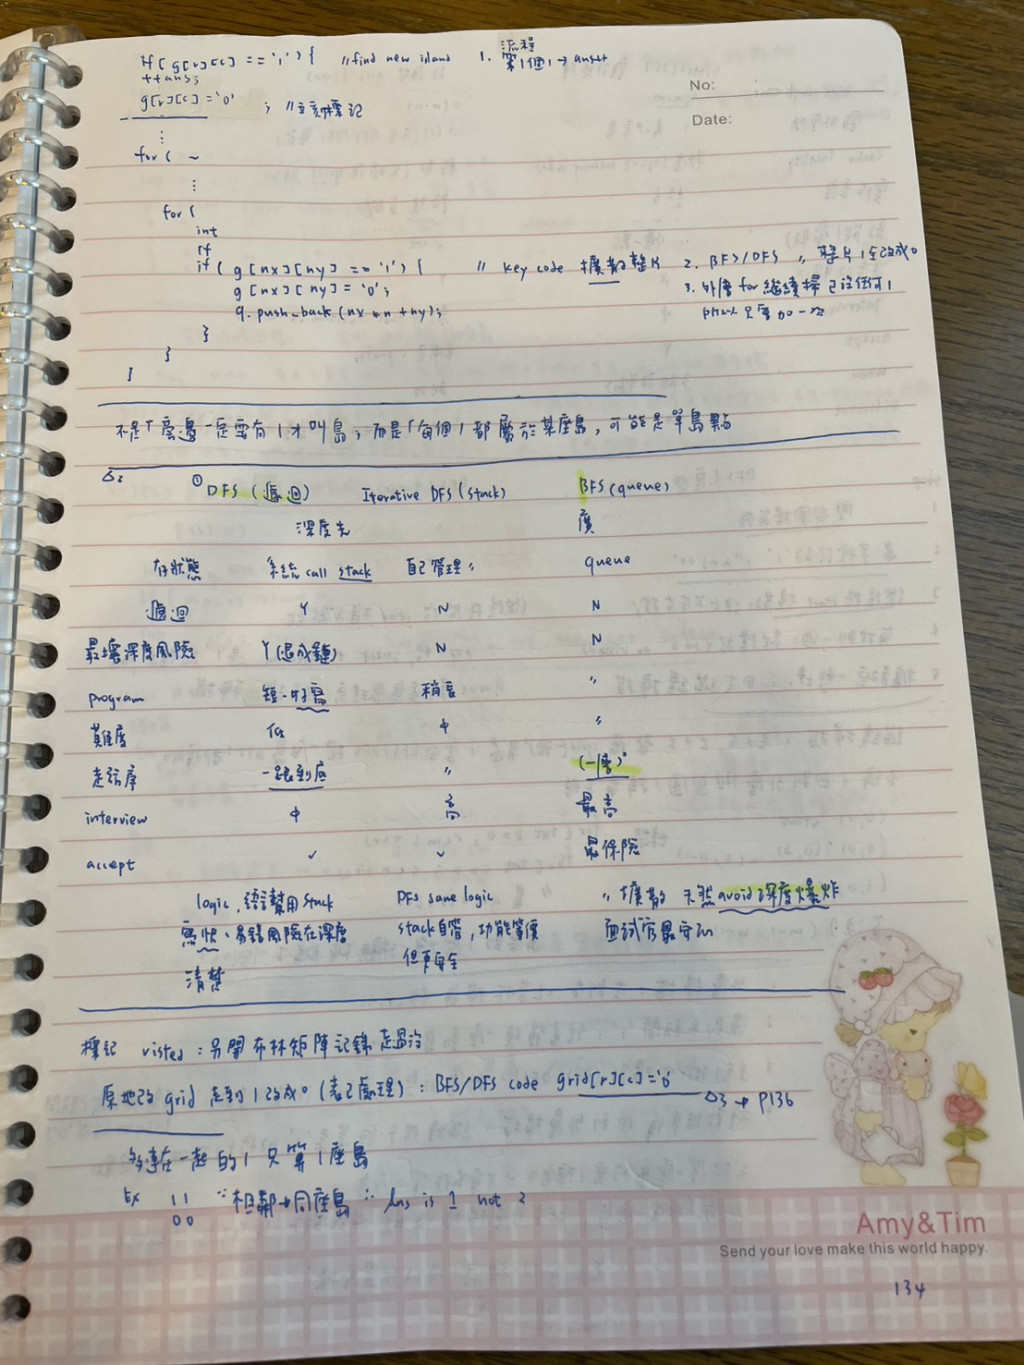 if( g[r][c] == '1') { //find new island 1. 流程 第1個1 → ans++
++ans;
g[r][c] = '0' ; //立刻標記
No:
Date:
⋮
for ( ~
⋮
for (
int
if
if( g[nx][ny] == '1') { // key code 擴散整片 2. BFS/DFS 〃 整片1全改成0
g[nx][ny] = '0'; 3. 外層for繼續掃已沒任何1
q.push_back(nx*n+ny); 所以只會加一次
}
}
}
不是「旁邊一定要有1才叫島」而是「每個1都屬於某座島,可能是單島點
△2 ① DFS (遞迴) Iterative DFS (stack) BFS (queue)
深度先 廣
存狀態 系統call stack 自己管理〃 queue
遞迴 Y N N
最壞深度風險 Y(退成鏈) N N
program 短、好寫 稍長 〃
難度 低 中 〃
走訪序 一路到底 〃 (一層)
interview 中 高 最高
accept ✓ ✓ 最保險
logic,語言幫用stack DFS same logic 〃擴散 天然avoid深度爆炸
寫快、易錯風險在深度 stack自管,功能等價 面試官最安心
清楚 但更安全
標記 visted : 另開布林矩陣記錄走過沒
原地改grid 走到1改成0 (表已處理) : BFS/DFS code grid[r][c]='0' △3 → P136
多連在一起的1 只算1座島
Ex 11 ∵相鄰→同座島 ∴ Ans is 1 not 2
00
Amy&Tim
Send your love make this world happy.
134